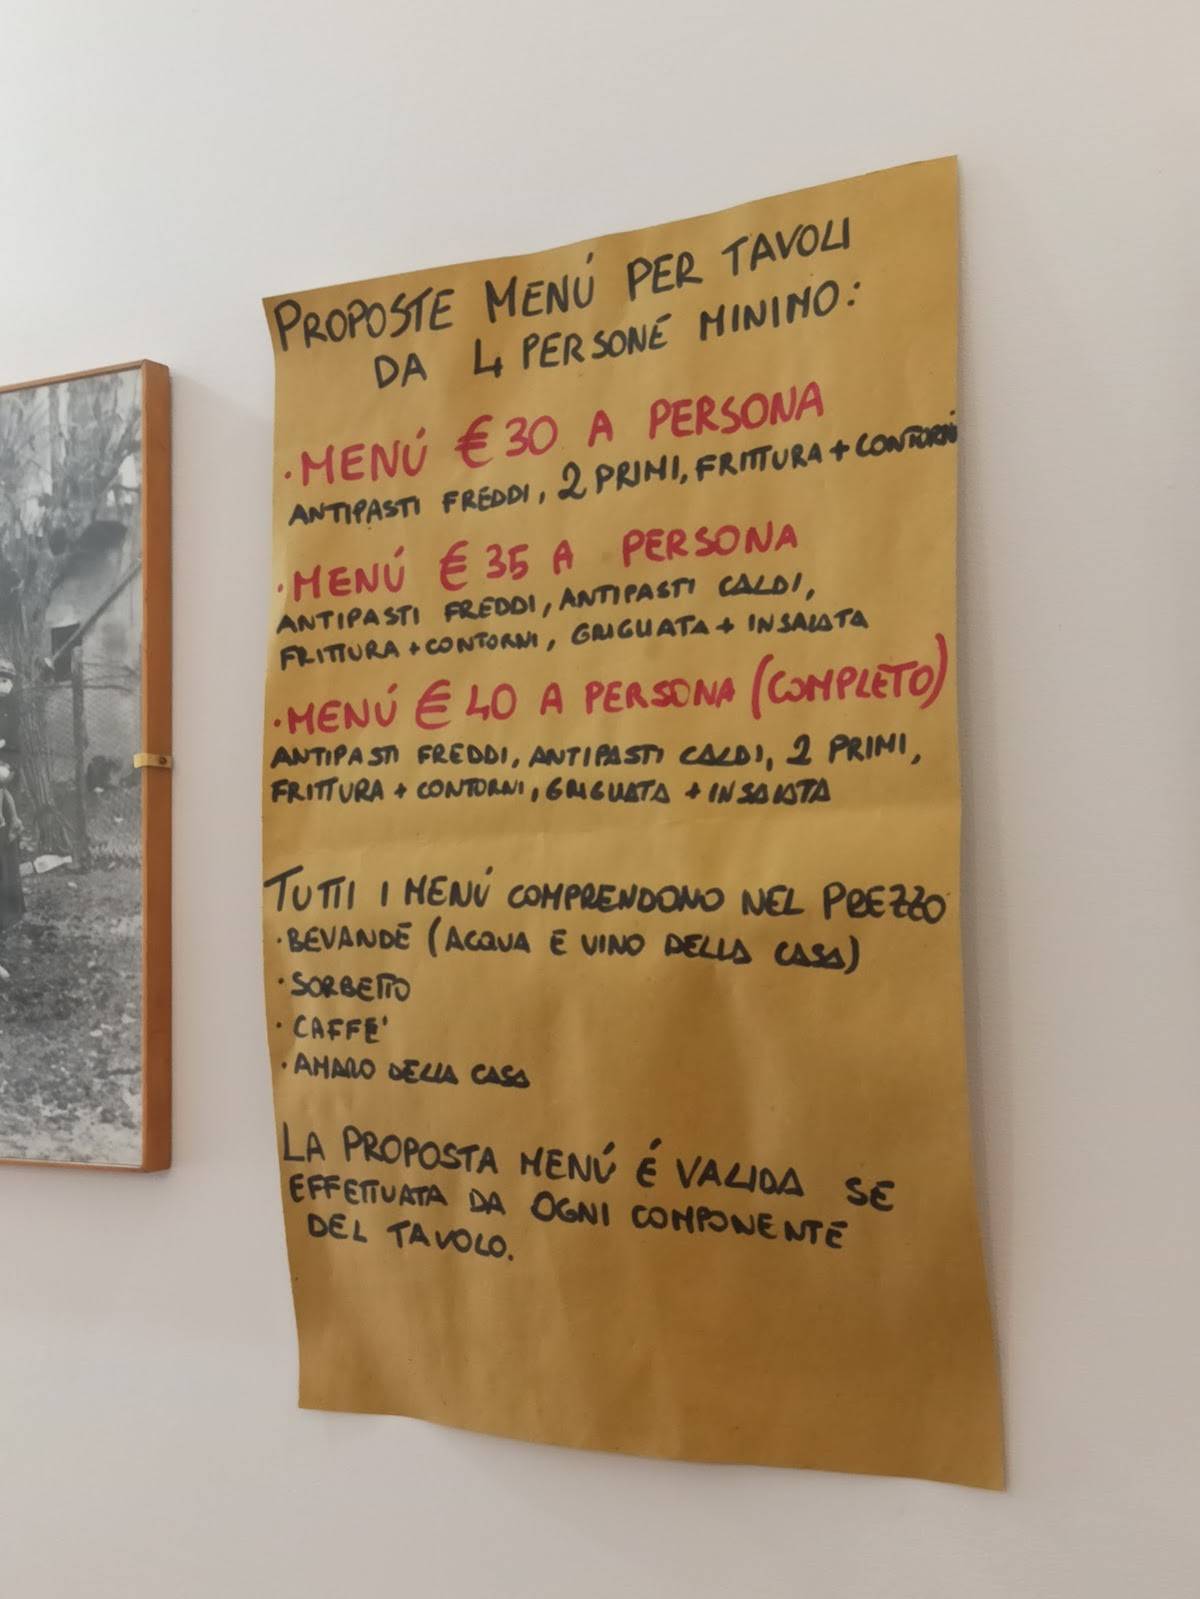 PROPOSTE MENÚ PER TAVOLI
DA 4 PERSONE MINIMO:
·MENÚ €30 A PERSONA
ANTIPASTI FREDDI, 2 PRIMI, FRITTURA + CONTORNI
·MENÚ €35 A PERSONA
ANTIPASTI FREDDI, ANTIPASTI CALDI,
FRITTURA + CONTORNI, GRIGLIATA + INSALATA
·MENÚ €40 A PERSONA (COMPLETO)
ANTIPASTI FREDDI, ANTIPASTI CALDI, 2 PRIMI,
FRITTURA + CONTORNI, GRIGLIATA + INSALATA
TUTTI I MENÚ COMPRENDONO NEL PREZZO
·BEVANDE (ACQUA E VINO DELLA CASA)
·SORBETTO
·CAFFE'
·AMARO DELLA CASA
LA PROPOSTA MENÚ É VALIDA SE
EFFETTUATA DA OGNI COMPONENTE
DEL TAVOLO.